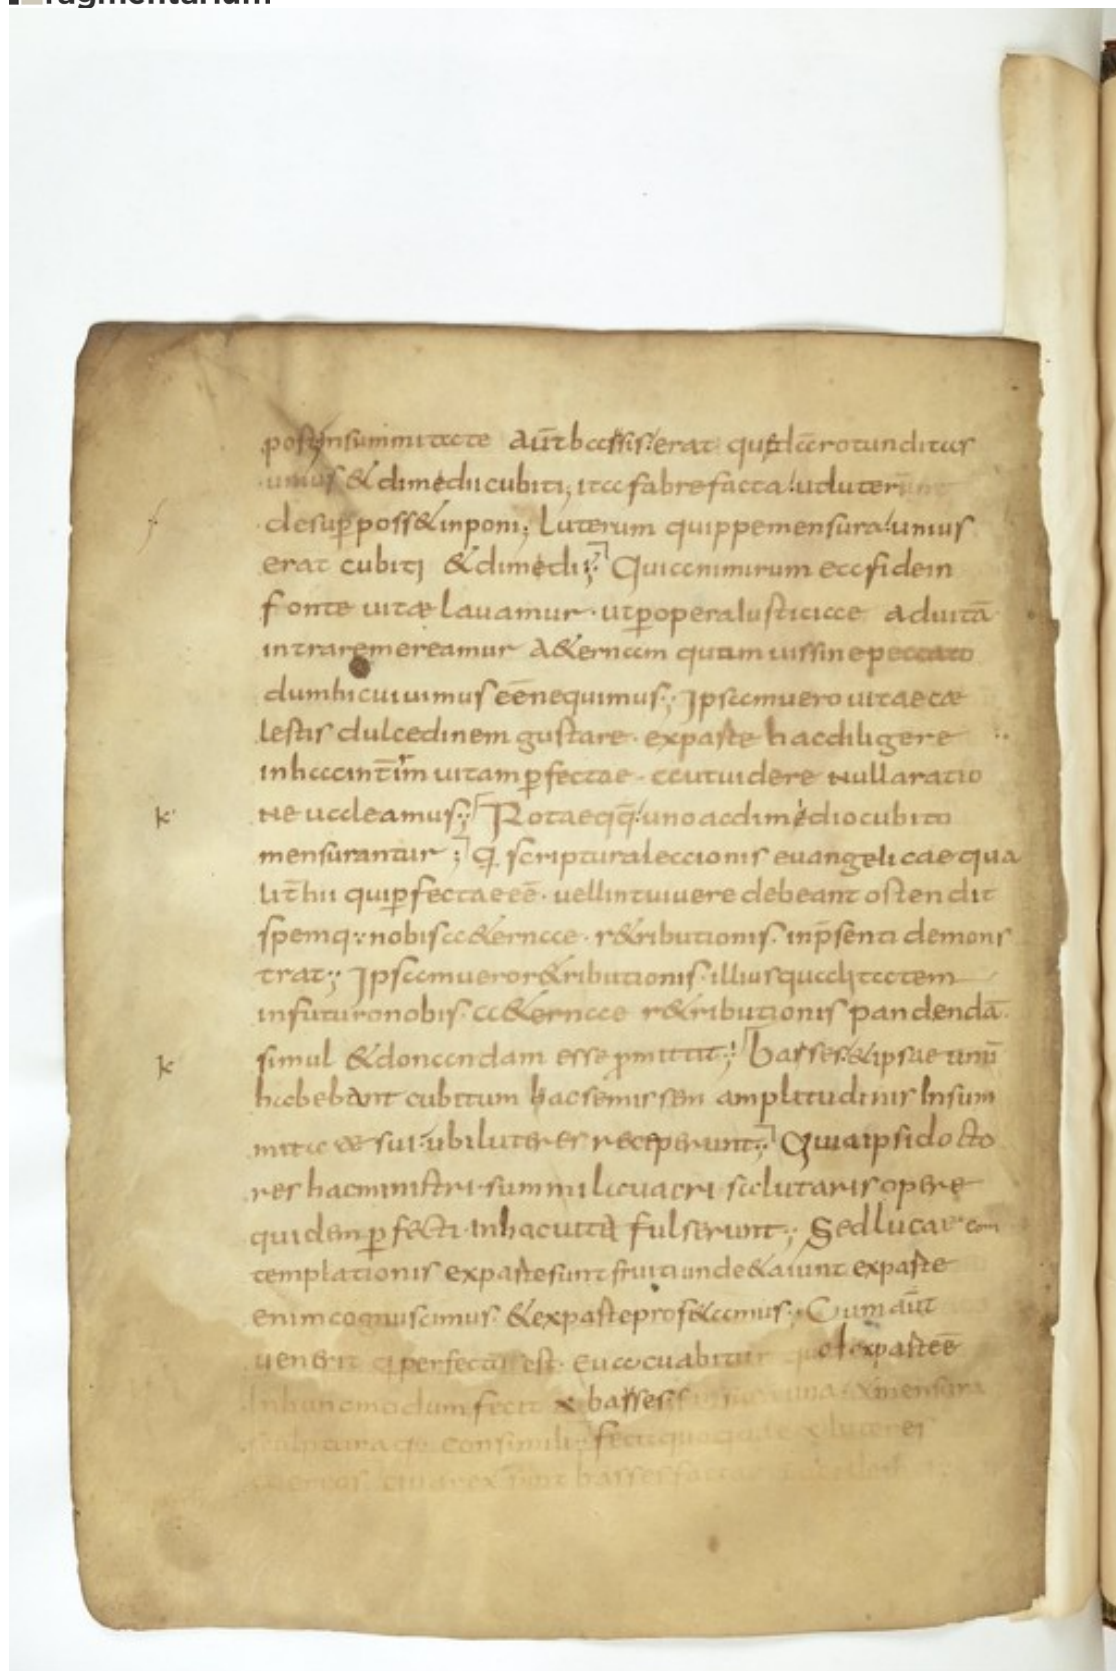 ragmentarium
post insummitate aut̄ bassis erat quędā rotunditas
unius & dimedii cubiti; ita fabrefacta ut luter
desuꝑ poss& inponi; luterum quippe mensura unius
erat cubiti & dimedii; Quia nimirum ea fide in
fonte uitæ lauamur · ut ꝑ opera iusticiae ad uitā
intrare mereamur a&ernam quam uis sine peccato
dum hic uiuimus eē nequimus; Ipsam uero uitae cæ
lestis dulcedinem gustare · ex parte hac diligere
in hac uitam ꝑfectae · aut uidere nulla ratio
ne ualeamus; Rotae qq̄ uno ac dimedio cubito
mensurantur; q scriptura leccionis euangelicae qua
lit̄ hii qui ꝑfectae eē · uellint uiuere debeant ostendit
spemq: nobis a&ernae · r&ributionis · in p̄senti demons
trat; Ipsam uero r&ributionis · illius
in futuro nobis · a&ernae r&ributionis pandendā
simul & donandam esse ꝓmittit; basses & ipsae unū
habebant cubitum hac semissen amplitudinis In sum
mitate sui · ubi luteres receperunt; Quia ipsi docto
res hac ministri · summi lauacri · salutaris opere
quidem ꝑfecti · in hac uita fulserunt; Sed lucae con
templationis ex parte sunt fruiti unde & aiunt ex parte
enim cognuscimus · & ex parte prof&amus; Cum aūt
uenerit q perfectū est · euacuabitur quod ex parte ē
In hunc modum fecit x basses mensura
sculpturaq: consimili; fecit quoque x luteres
aereos · basses
k
k